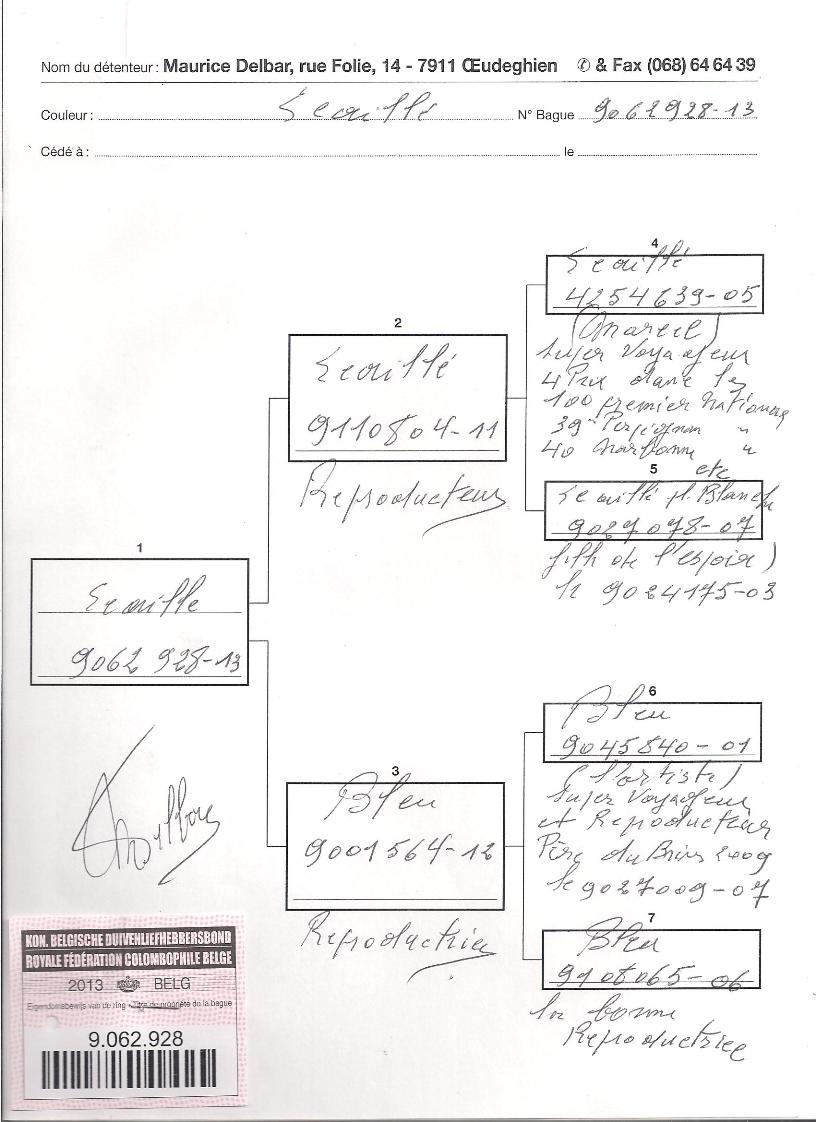 Nom du détenteur : Maurice Delbar, rue Folie, 14 - 7911 Œudeghien ✆ & Fax (068) 64 64 39
Couleur : Ecaillé N° Bague 9062928-13
Cédé à : le
4
Ecaillé
4254639-05
(Marcel)
Super Voyageur
4 Prix dans les
100 premier Nationaux
39e Perpignan "
40 Narbonne "
etc
2
Ecaillé
9110804-11
Reproducteur
5
Ecaillé pl. Blanche
9027078-07
fille de l'espoir)
le 9024175-03
1
Ecaillé
9062 928-13
6
Bleu
9045840-01
(l'artiste)
Super Voyageur
et Reproducteur
Père du 2009
le 9027009-07
3
Bleu
9001564-12
Reproductrice
7
Bleu
9108065-06
la bonne
Reproductrice
KON. BELGISCHE DUIVENLIEFHEBBERSBOND
ROYALE FÉDÉRATION COLOMBOPHILE BELGE
2013 BELG
Eigendomsbewijs van de ring - Titre de propriété de la bague
9.062.928